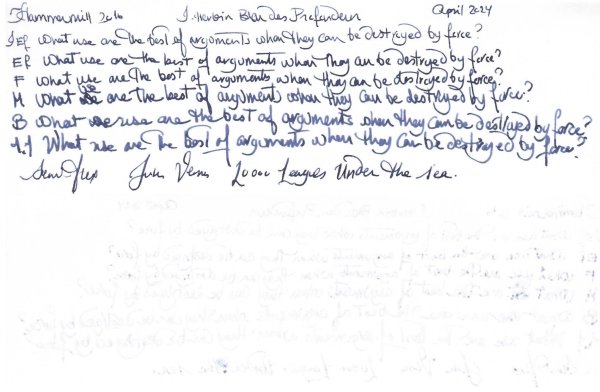 Hammermill 20lb J. Herbin Bleu des Profondeurs April 2024
EF What use are the best of arguments when they can be destroyed by force?
EF What use are the best of arguments when they can be destroyed by force?
F What use are the best of arguments when they can be destroyed by force?
M What use are the best of arguments when they can be destroyed by force?
B What use are the best of arguments when they can be destroyed by force?
1.1 What use are the best of arguments when they can be destroyed by force?
Semi-flex Jules Verne 20000 Leagues Under the Sea.